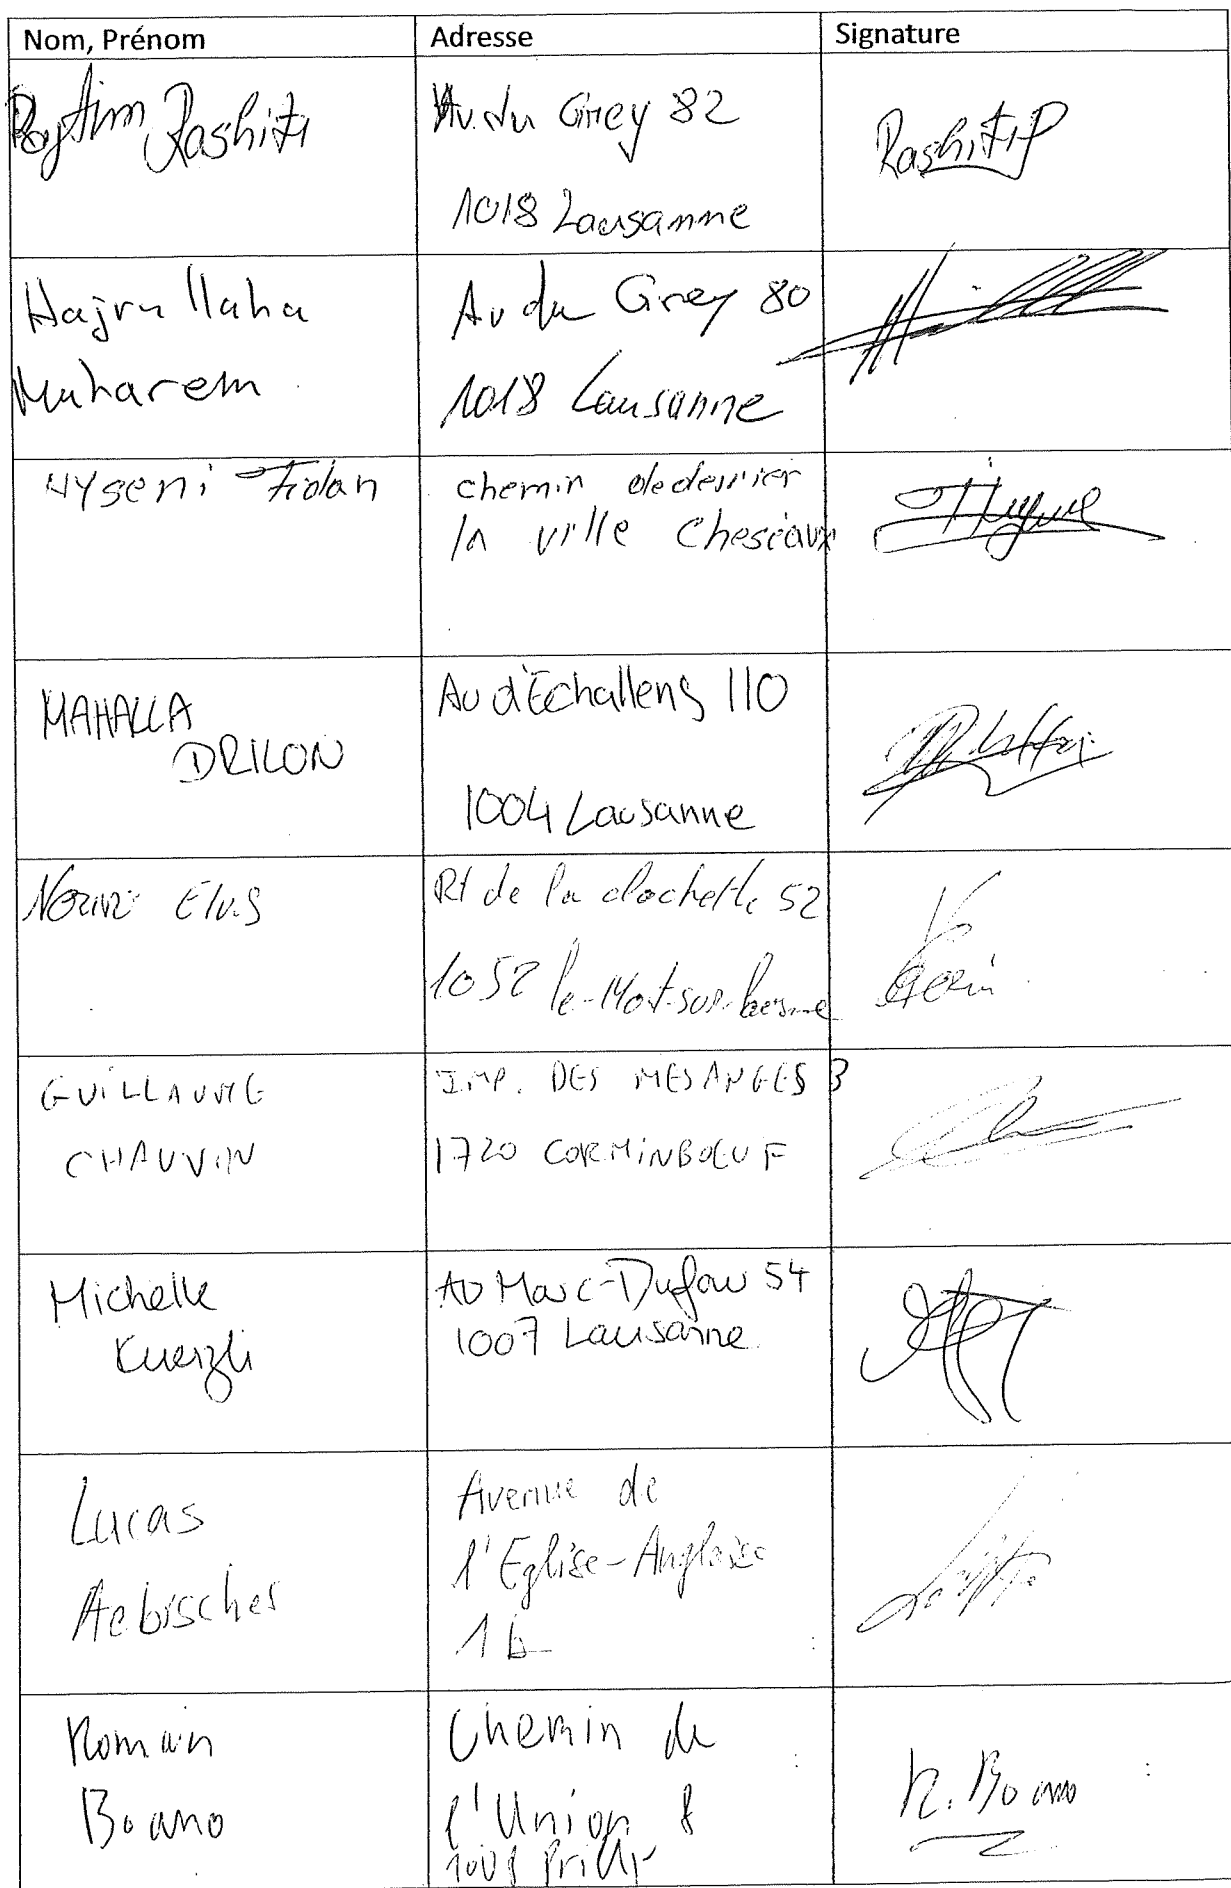 Nom, Prénom
Adresse
Signature
Rashiti
Av. du Grey 82
1018 Lausanne
Rashiti
Hajrullaha
Muharem
Av du Grey 80
1018 Lausanne
Hyseni Fidan
chemin de derrier
la ville Cheseaux
MAHALLA
DRILON
Av d'Echallens 110
1004 Lausanne
Elvis
Rt de la clochette 52
1052 le-Mont-sur-
GUILLAUME
CHAUVIN
IMP. DES MESANGES 3
1720 CORMINBOEUF
Michelle
Kuenzli
Av Marc-Dufour 54
1007 Lausanne
Lucas
Aebischer
Avenue de
l'Eglise-Anglaise
1b
Romain
Boano
Chemin de
l'Union 8
1008 Prilly
R. Boano